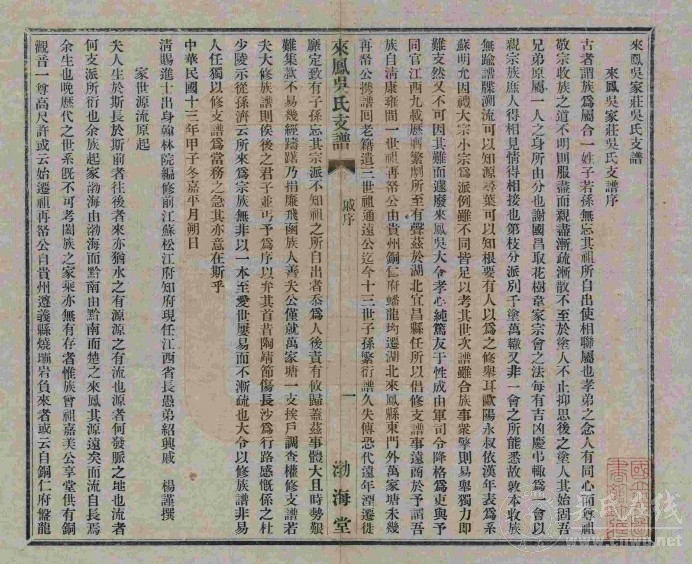 來鳳吳家莊吳氏支譜
來鳳吳家莊吳氏支譜序
古者謂族爲屬合一姓子若孫無忘其祖所自出使相聯屬也孝弟之念人有同心而尊祖
敬宗收族之道不明則服盡而親盡漸疏漸散不至於塗人不止抑思後之塗人其始固吾
兄弟原屬一人之身所由分也謝國昌取花樹韋家宗會之法每有吉凶慶弔輙爲一會以
親宗族庶人得相見情得相接也第枝分派別千塗萬轍又非一會之所能悉故敦本收族
無踰譜牒溯流可以知源尋葉可以知根要有人以爲之修舉耳歐陽永叔依漢年表爲系
蘇明允因禮大宗小宗爲派例雖不同皆足以考其世次譜雖合族事衆擎則易舉獨力即
難支然又不可因其難而遽廢來鳳吳大令孝心純篤友于性成由軍司令降格爲吏與予
同官江西九載歷膺繁劇所至有聲茲於湖北宜昌縣任所以倡修支譜事遠商於予謂吾
族自清康雍間一世祖再榮公由貴州銅仁府蟠龍坉遷湖北來鳳縣東門外萬家塘未幾
再榮公携譜回老籍遺三世祖通遠公迄今十三世子孫繁衍譜久失傳恐代遠年湮遷徙
靡定致有子孫忘其宗派不知祖之所自出者忝爲人後責有攸歸蓋茲事體大且時勢艱
難集款不易幾經躊躇乃捐廉飛函族人善夫公僅就萬家塘一支挨戶調查權修支譜若
夫大修族譜則俟後之君子並丐予爲序以弁其首昔陶靖節傷長沙爲行路感慨係之杜
少陵示從孫濟云所來爲宗族無非以一本至愛世屢易而不漸疏也大令以修族譜非易
人任獨以修支譜爲當務之急其亦意在斯乎
中華民國十三年甲子冬嘉平月朔日
清賜進士出身翰林院編修前江蘇松江府知府現任江西省長愚弟紹興戚 楊謹撰
來鳳吳氏支譜
戚序
一
渤海堂
家世源流原起
夫人生於斯長於斯前者往後者來亦猶水之有源源之有流也源者何發脈之地也流者
何支派所衍也余族起家渤海由渤海而黔南由黔南而楚之來鳳其源遠矣而流自長焉
余生也晚歷代之世系既不可考闔族之家乘亦無有存者惟族曾祖嘉美公享堂供有銅
觀音一尊高尺許或云始遷祖再榮公自貴州遵義縣燒壩岩負來者或云自銅仁府盤龍
吳氏在线
www.cnwu.net